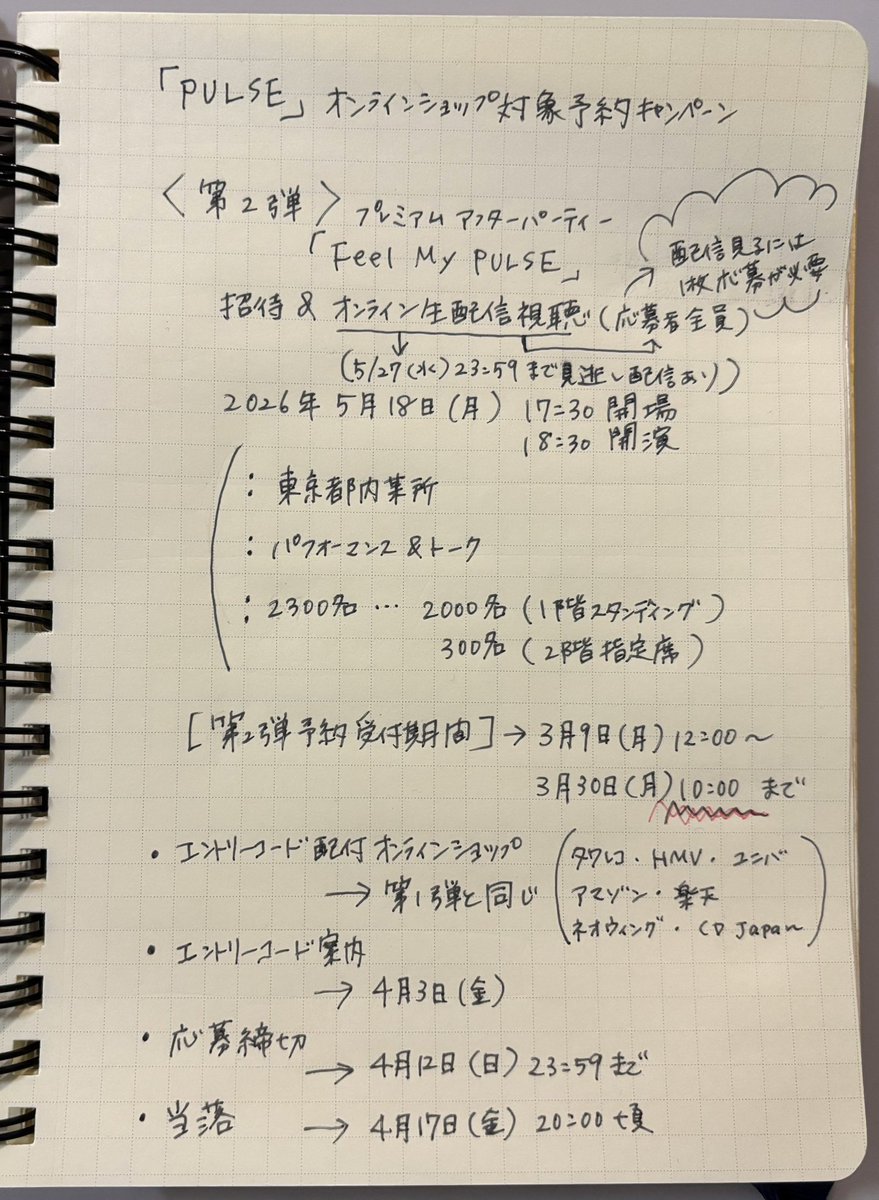 「PULSE」オンラインショップ対象予約キャンペーン
〈第2弾〉プレミアムアフターパーティー
「Feel My PULSE」
配信見るには
1枚応募が必要
招待 & オンライン生配信視聴(応募者全員)
(5/27(水)23:59まで見逃し配信あり)
2026年5月18日(月) 17:30 開場
18:30 開演
: 東京都内某所
: パフォーマンス&トーク
: 2300名 … 2000名(1階スタンディング)
300名(2階指定席)
[第2弾予約受付期間]→ 3月9日(月)12:00〜
3月30日(月)10:00 まで
・エントリーコード配付オンラインショップ
→ 第1弾と同じ
(タワレコ・HMV・ユニバ
アマゾン・楽天
ネオウィング・CD Japan)
・エントリーコード案内
→ 4月3日(金)
・応募締切
→ 4月12日(日)23:59まで
・当落 → 4月17日(金)20:00頃